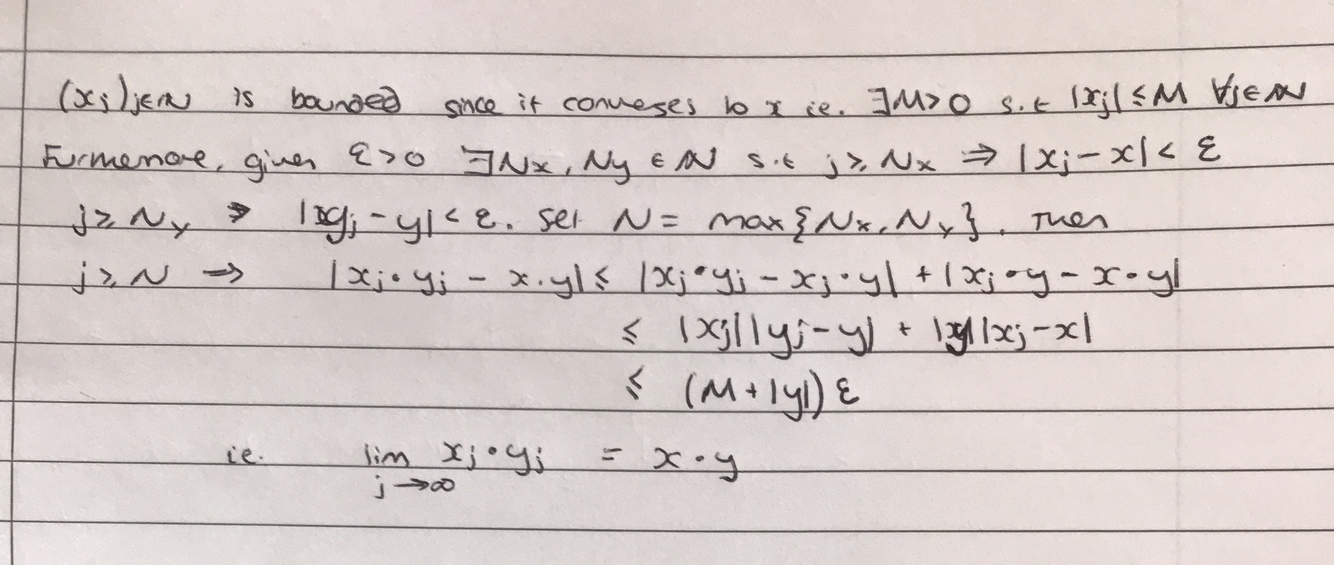 (xⱼ)j∈ℕ is bounded since it converges to x ie. ∃M>0 s.t |xⱼ| ≤ M ∀j∈ℕ
Furthermore, given ε>0 ∃Nx, Ny ∈ ℕ s.t j ≥ Nx ⇒ |xⱼ - x| < ε
j ≥ Ny ⇒ |yⱼ - y| < ε. Set N = max{Nx, Ny}. Then
j ≥ N ⇒ |xⱼ·yⱼ - x·y| ≤ |xⱼ·yⱼ - xⱼ·y| + |xⱼ·y - x·y|
≤ |xⱼ||yⱼ - y| + |y||xⱼ - x|
≤ (M + |y|) ε
ie. lim xⱼ·yⱼ = x·y
j→∞